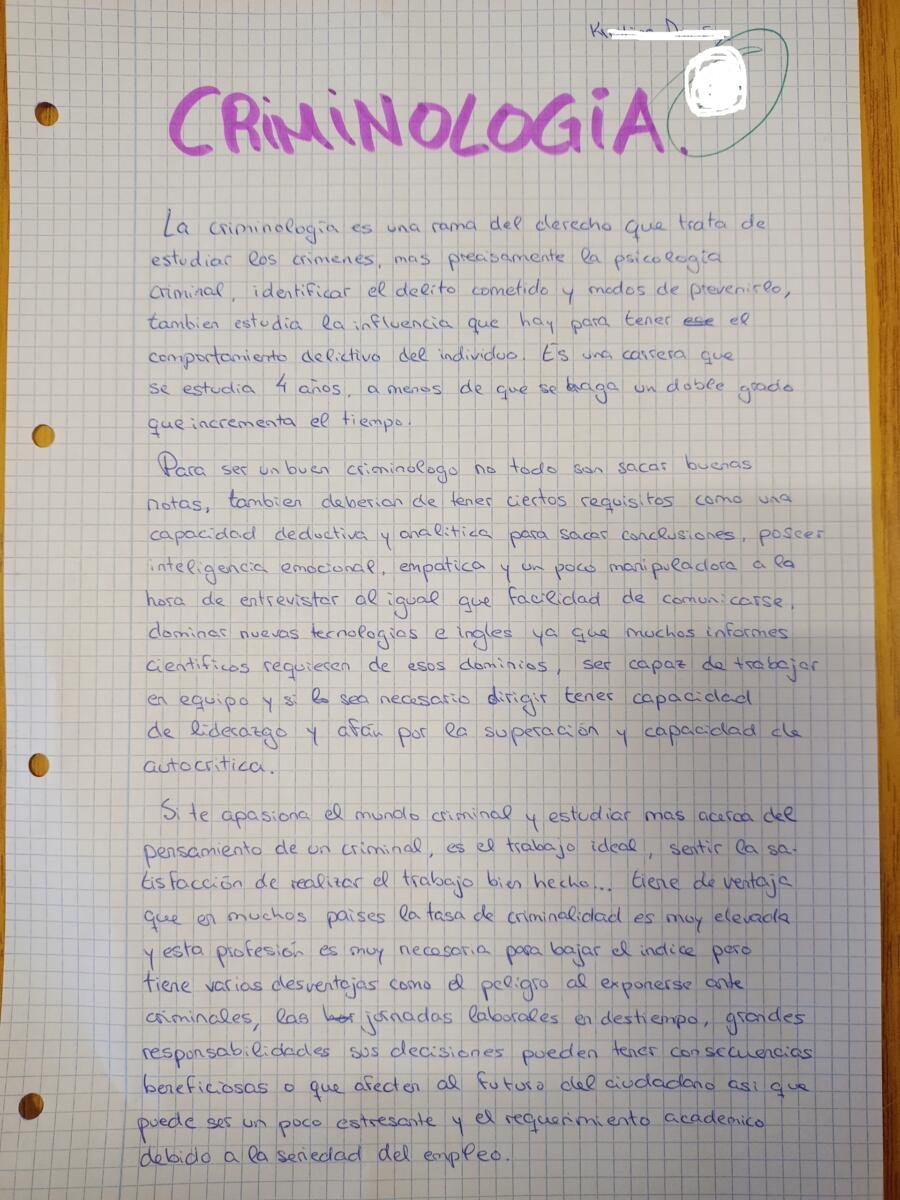 CRIMINOLOGIA.
La criminología es una rama del derecho que trata de
estudiar los crimenes, mas precisamente la psicologia
criminal, identificar el delito cometido y modos de prevenirlo,
tambien estudia la influencia que hay para tener el
comportamiento delictivo del individuo. Es una carrera que
se estudia 4 años, a menos de que se haga un doble grado
que incrementa el tiempo.
Para ser un buen criminologo no todo son sacar buenas
notas, tambien deberian de tener ciertos requisitos como una
capacidad deductiva y analitica para sacar conclusiones, poseer
inteligencia emocional, empatica y un poco manipuladora a la
hora de entrevistar al igual que facilidad de comunicarse,
dominar nuevas tecnologias e ingles ya que muchos informes
cientificos requieren de esos dominios, ser capaz de trabajar
en equipo y si sea necesario dirigir tener capacidad
de liderazgo y afán por la superación y capacidad de
autocritica.
Si te apasiona el mundo criminal y estudiar mas acerca del
pensamiento de un criminal, es el trabajo ideal, sentir la sa-
tisfacción de realizar el trabajo bien hecho... tiene de ventaja
que en muchos paises la tasa de criminalidad es muy elevada
y esta profesión es muy necesaria para bajar el indice pero
tiene varias desventajas como el peligro al exponerse ante
criminales, las jornadas laborales en destiempo, grandes
responsabilidades sus decisiones pueden tener consecuencias
beneficiosas o que afecten al futuro del ciudadano asi que
puede ser un poco estresante y el requerimiento academico
debido a la seriedad del empleo.